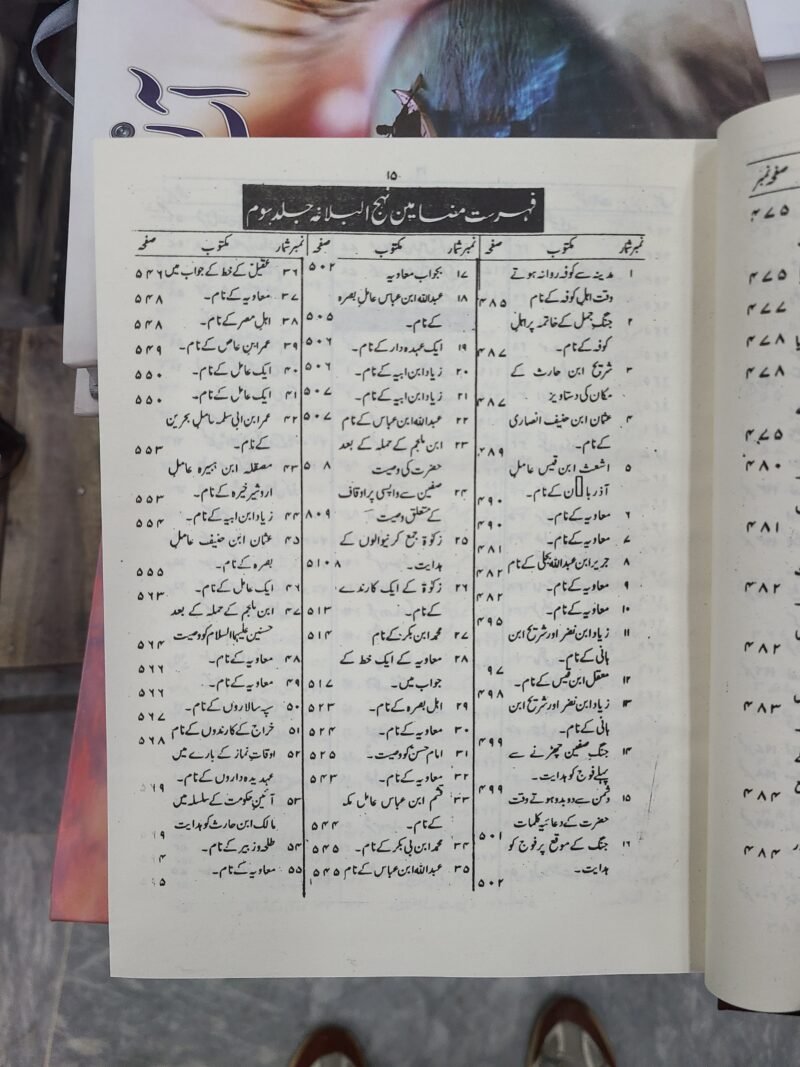 ۱۵
فہرست مضامین نہج البلاغہ جلد سوم
نمبر شمار مکتوب صفحہ
۱ مدینہ سے کوفہ روانہ ہوتے
وقت اہل کوفہ کے نام ۴۸۵
۲ جنگ جمل کے خاتمہ پر اہل
کوفہ کے نام۔ ۴۸۷
۳ شریح ابن حارث کے
مکان کی دستاویز ۴۸۷
۴ عثمان ابن حنیف انصاری
کے نام۔ ۴۸۹
۵ اشعث ابن قیس عامل
کے نام۔ ۴۹۰
۶ معاویہ کے نام۔ ۴۹۰
۷ معاویہ کے نام۔ ۴۸۱
۸ جریر ابن عبداللہ بجلی کے نام ۴۸۲
۹ معاویہ کے نام۔ ۴۸۲
۱۰ معاویہ کے نام۔ ۴۹۵
۱۱ زیاد ابن نضر اور شریح ابن
ہانی کے نام۔ ۹۷
۱۲ معقل ابن قیس کے نام۔ ۴۹۸
۱۳ زیاد ابن نضر اور شریح ابن
ہانی کے نام۔ ۴۹۹
۱۴ جنگ صفین چھڑنے سے
پہلے فوج کو ہدایت۔ ۴۹۹
۱۵ دشمن سے دوبدو ہوتے وقت
حضرت کے دعائیہ کلمات ۵۰۱
۱۶ جنگ کے موقع پر فوج کو
ہدایت۔ ۵۰۲
نمبر شمار مکتوب صفحہ
۱۷ بجواب معاویہ ۵۰۲
۱۸ عبداللہ ابن عباس عامل بصرہ
کے نام۔ ۵۰۵
۱۹ ایک عہدہ دار کے نام۔ ۵۰۶
۲۰ زیاد ابن ابیہ کے نام۔ ۵۰۶
۲۱ زیاد ابن ابیہ کے نام۔ ۵۰۷
۲۲ عبداللہ ابن عباس کے نام ۵۰۷
۲۳ ابن ملجم کے حملہ کے بعد
حضرت کی وصیت ۵۰۸
۲۴ صفین سے واپسی پر اوقاف
کے متعلق وصیت ۸۰۹
۲۵ زکوۃ جمع کرنیوالوں کے
ہدایت۔ ۵۱۰۸
۲۶ زکوۃ کے ایک کارندے
کے نام۔ ۵۱۳
۲۷ محمد ابن بکر کے نام ۵۱۴
۲۸ معاویہ کے ایک خط کے
جواب میں۔ ۵۱۷
۲۹ اہل بصرہ کے نام۔ ۵۲۳
۳۰ معاویہ کے نام۔ ۵۲۴
۳۱ امام حسن کو وصیت۔ ۵۲۵
۳۲ معاویہ کے نام۔ ۵۴۳
۳۳ قثم ابن عباس عامل مکہ
کے نام۔ ۵۴۴
۳۴ محمد ابن ابی بکر کے نام۔ ۵۴۵
۳۵ عبداللہ ابن عباس کے نام ۵۴۵
نمبر شمار مکتوب صفحہ
۳۶ عقیل کے خط کے جواب میں ۵۴۶
۳۷ معاویہ کے نام۔ ۵۴۸
۳۸ اہل مصر کے نام۔ ۵۴۸
۳۹ عمر ابن عاص کے نام۔ ۵۴۹
۴۰ ایک عامل کے نام۔ ۵۵۰
۴۱ ایک عامل کے نام۔ ۵۵۰
۴۲ عمر ابن ابی سلمہ عامل بحرین
کے نام۔ ۵۵۳
۴۳ مصقلہ ابن ہبیرہ عامل
اردشیر خرہ کے نام۔ ۵۵۳
۴۴ زیاد ابن ابیہ کے نام۔ ۵۵۴
۴۵ عثمان ابن حنیف عامل
بصرہ کے نام۔ ۵۵۵
۴۶ ایک عامل کے نام۔ ۵۶۳
۴۷ ابن ملجم کے حملہ کے بعد
حسنین علیہما السلام کو وصیت ۵۶۴
۴۸ معاویہ کے نام۔ ۵۶۶
۴۹ معاویہ کے نام۔ ۵۶۶
۵۰ سپہ سالاروں کے نام۔ ۵۶۷
۵۱ خراج کے کارندوں کے نام ۵۶۸
۵۲ اوقات نماز کے بارے میں
عہدیدہ داروں کے نام۔ ۵۶۹
۵۳ آئین حکومت کے سلسلہ میں
مالک ابن حارث کو ہدایت ۱۹
۵۴ طلحہ و زبیر کے نام۔ ۱۴
۵۵ معاویہ کے نام۔ ۱۵
صفحہ نمبر
۴۷۵
۴۷۵
۴۷۷
۴۷۸
۴۷۸
۴۷۵
۴۸۰
۴۸۱
۴۸۲
۴۸۲
۴۸۳
۴۸۴
۴۸۴